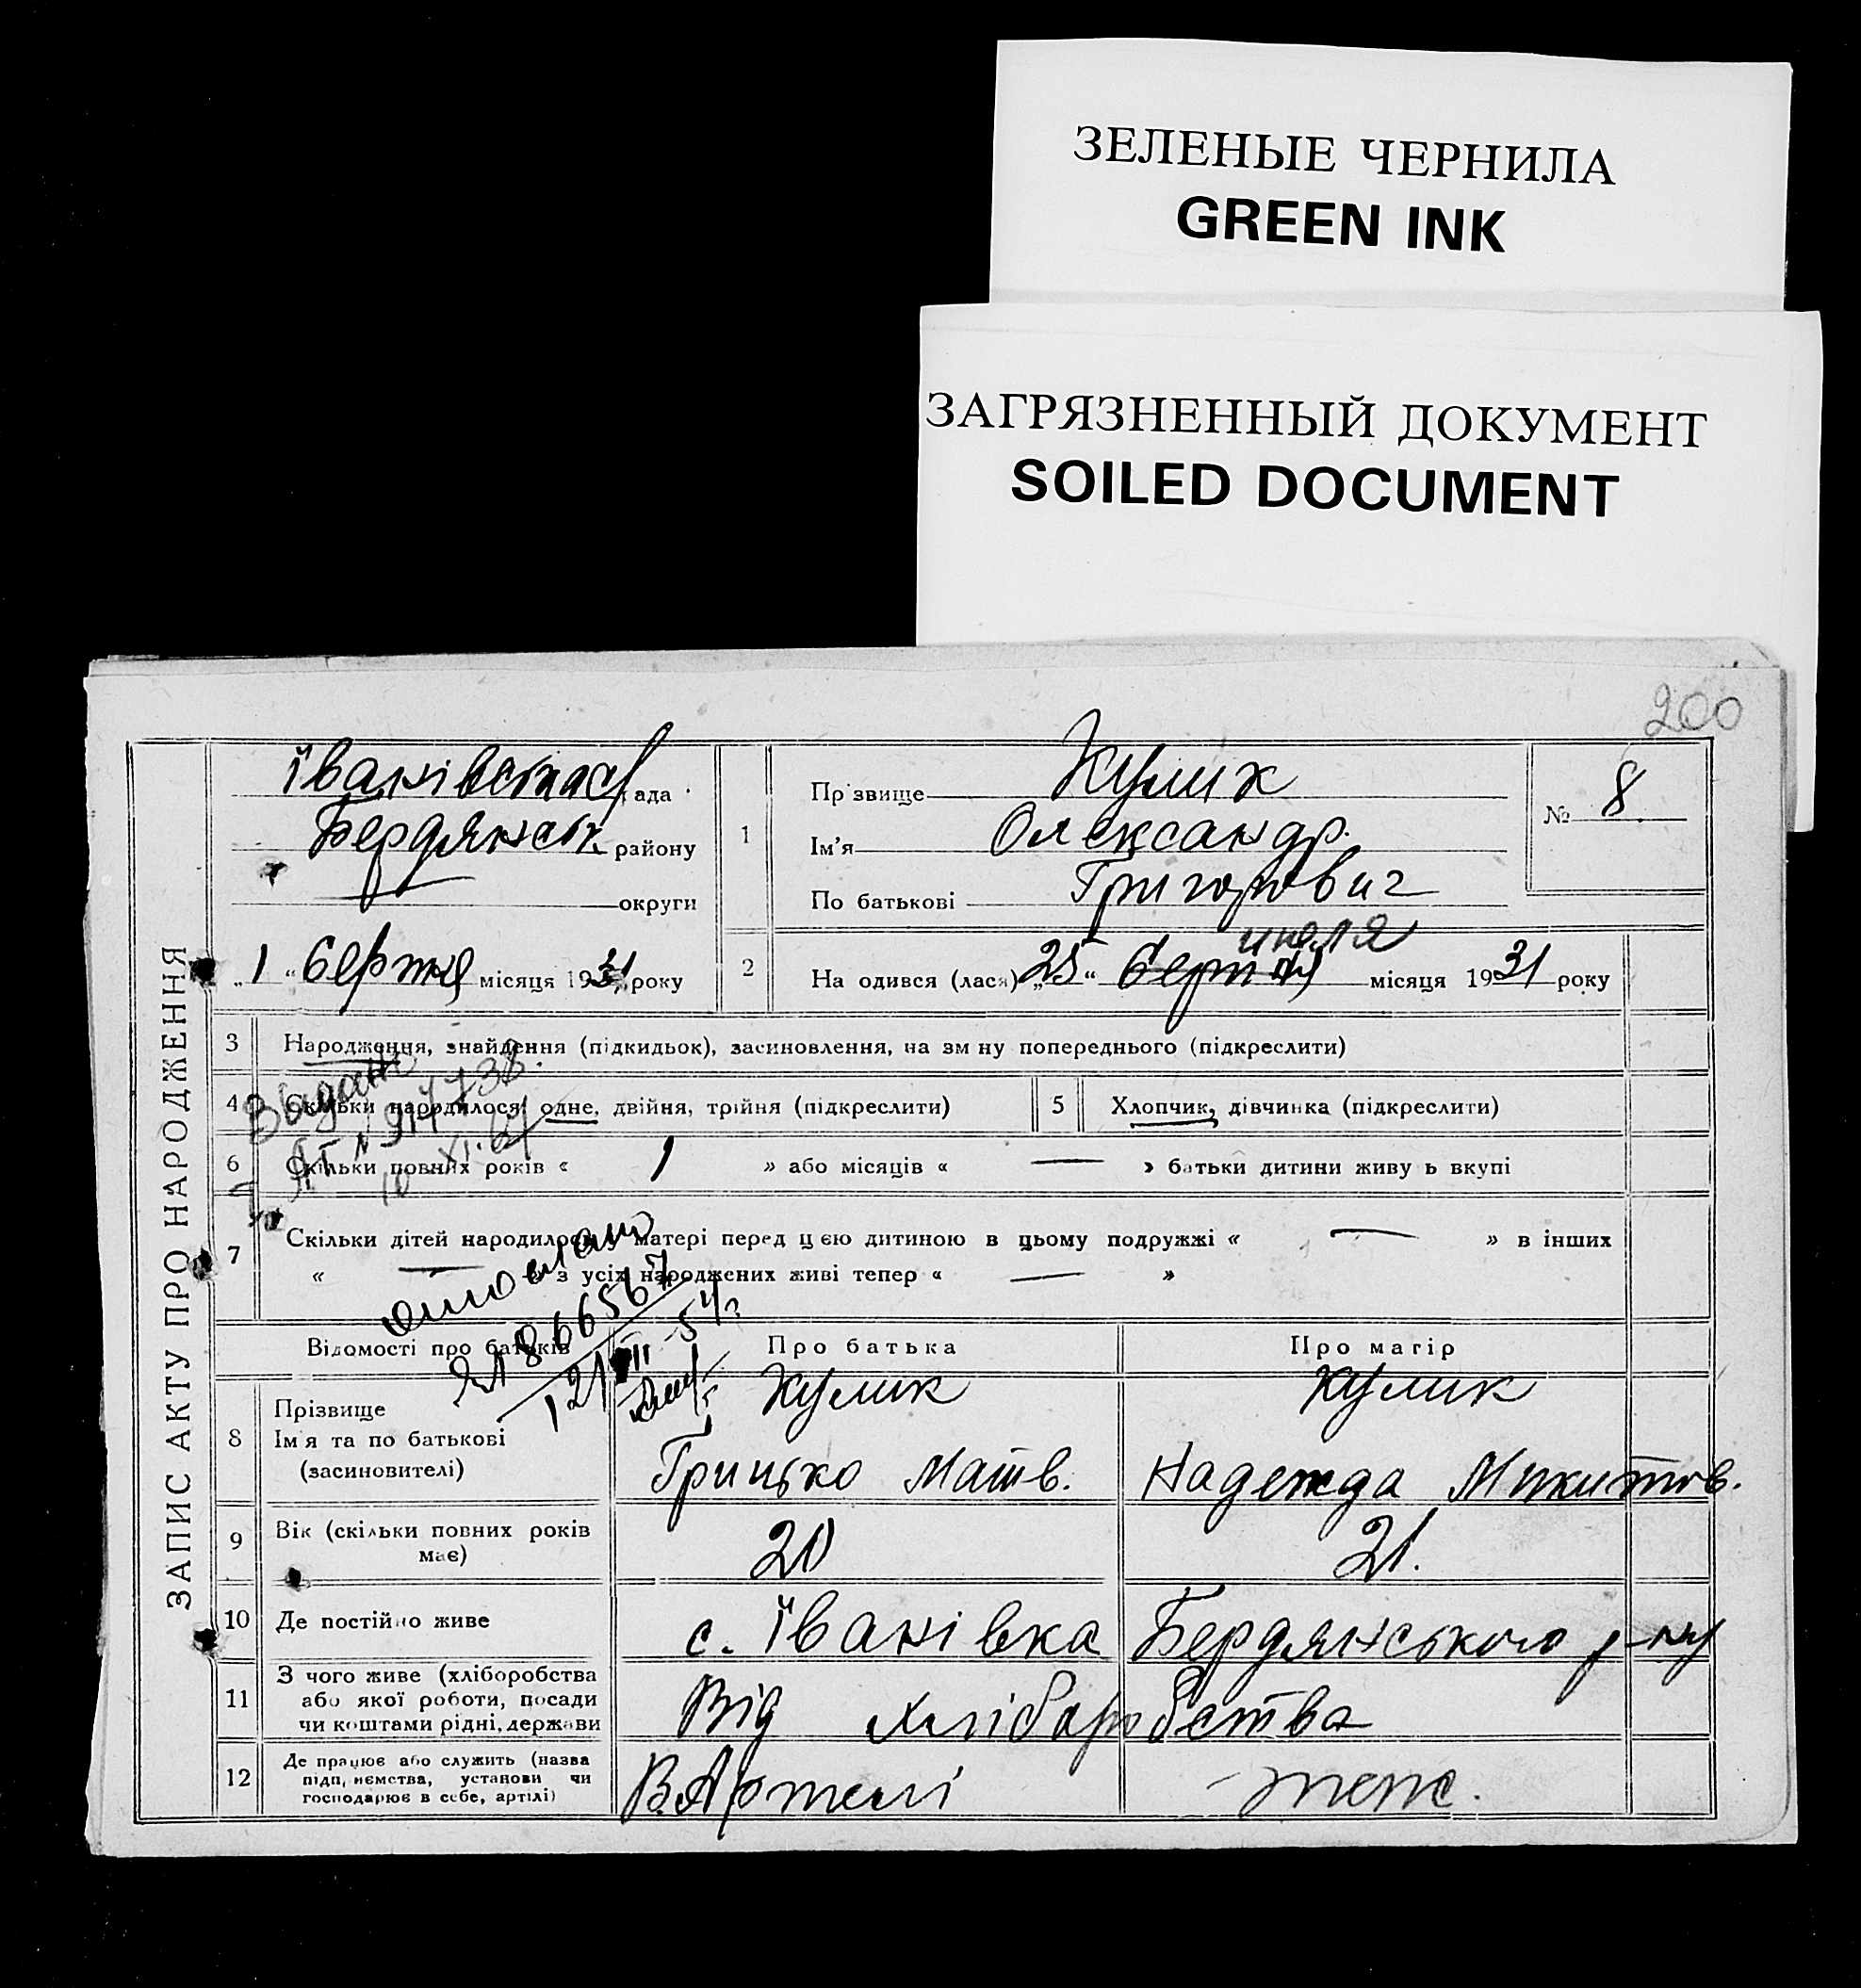 ЗЕЛЕНЫЕ ЧЕРНИЛА
GREEN INK
ЗАГРЯЗНЕННЫЙ ДОКУМЕНТ
SOILED DOCUMENT
200
ЗАПИС АКТУ ПРО НАРОДЖЕННЯ
Іванівська рада
Бердянськ. району
округи
„1“ серпня місяця 1931 року
1
Прізвище Кулик
Ім'я Олександр.
По батькові Григорович
№ 8
2 На одився (лася) „25“ серпня июля місяця 1931 року
3 Народження, знайдення (підкидьок), засиновлення, на зм ну попереднього (підкреслити)
4 Скільки народилося: одне, двійня, трійня (підкреслити)
5 Хлопчик, дівчинка (підкреслити)
6 Скільки повних років « 1 » або місяців « — » батьки дитини живу ь вкупі
7 Скільки дітей народилося у матері перед ц єю дитиною в цьому подружжі « — » в інших
« — » з усіх народжених живі тепер « — »
Видано
АГ № 917738.
10 XI.67
866567
Відомості про батьків
Про батька
Про матір
8 Прізвище
Ім'я та по батькові
(засиновителі)
Кулик
Грицько Матв.
Кулик
Надежда Микитов.
9 Вік (скільки повних років
має)
20
21.
10 Де постійно живе
с. Іванівка Бердянського р-ну
11 З чого живе (хліборобства
або якої роботи, посади
чи коштами рідні, держави
Від хліборобства
12 Де працює або служить (назва
підп, иємства, установи чи
господарює в себе, артілі)
В Артелі
- теж.